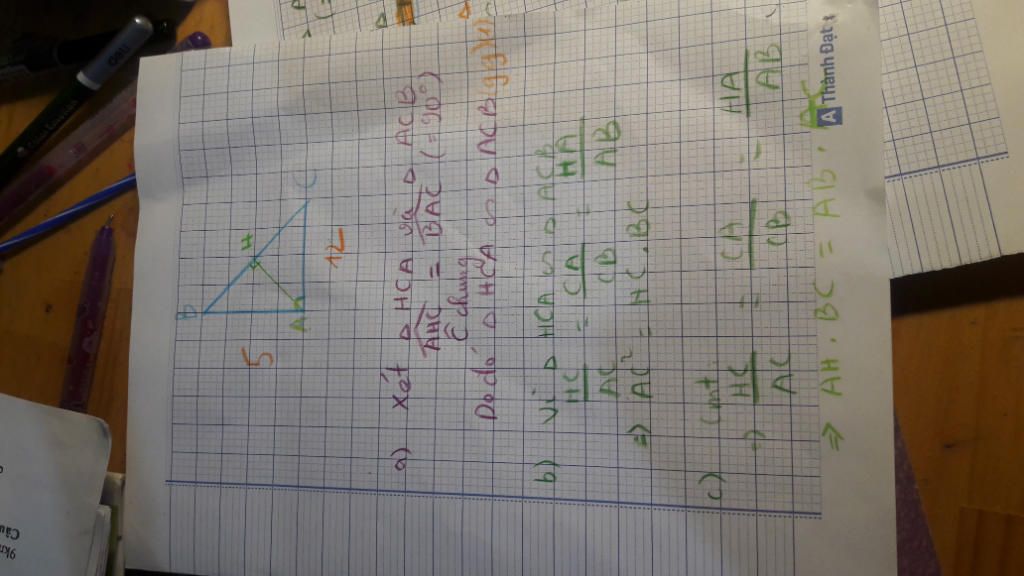 B
H
5
A
C
12
a) Xét △ HCA và △ ACB
AHC = BAC (= 90°)
Ĉ chung
Do đó △ HCA ∽ △ ACB (gg)
b) Vì △ HCA ∽ △ ACB
HC/AC = CA/CB = HA/AB
=> AC² = HC . BC
c) cmt
=> HC/AC = CA/CB = HA/AB
=> AH . BC = AB . AC
A Thành Đạt
Câu